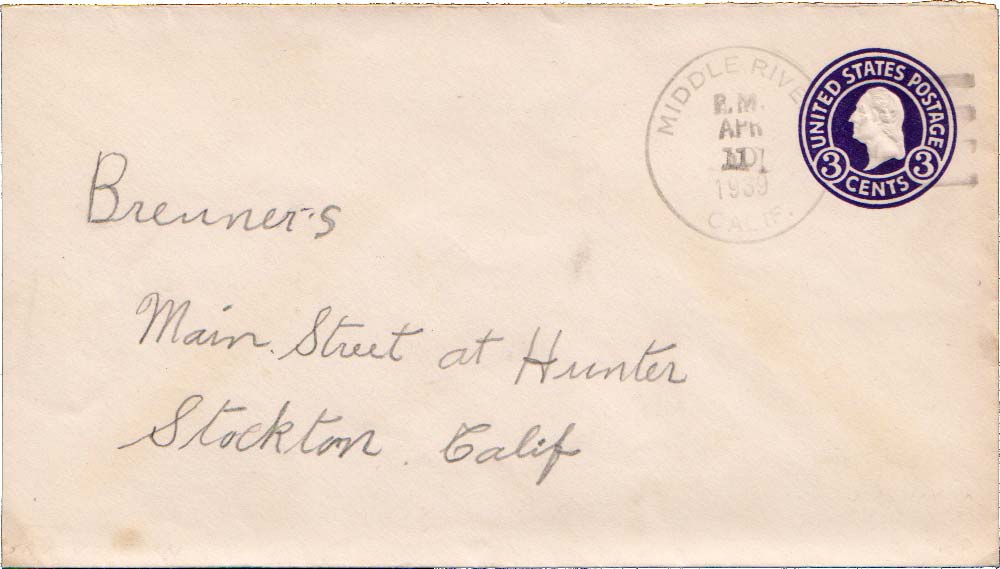 MIDDLE RIVE
P.M.
APR
11
1939
CALIF.
UNITED STATES POSTAGE
3 CENTS 3
Breuner's
Main Street at Hunter
Stockton Calif